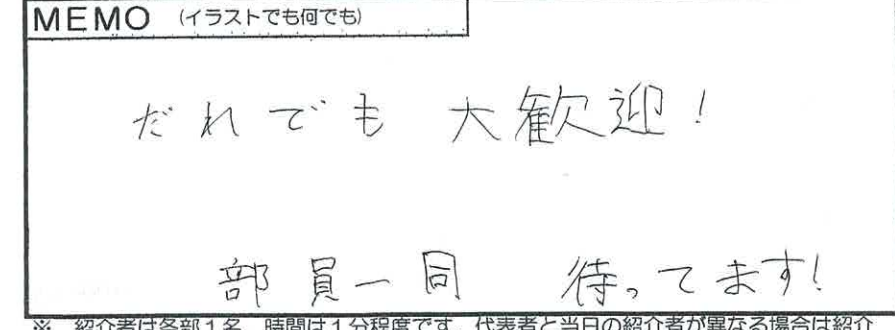 MEMO (イラストでも何でも)
だれでも 大歓迎!
部員一同 待ってます!
※ 紹介者は各部1名、時間は1分程度です。代表者と当日の紹介者が異なる場合は紹介